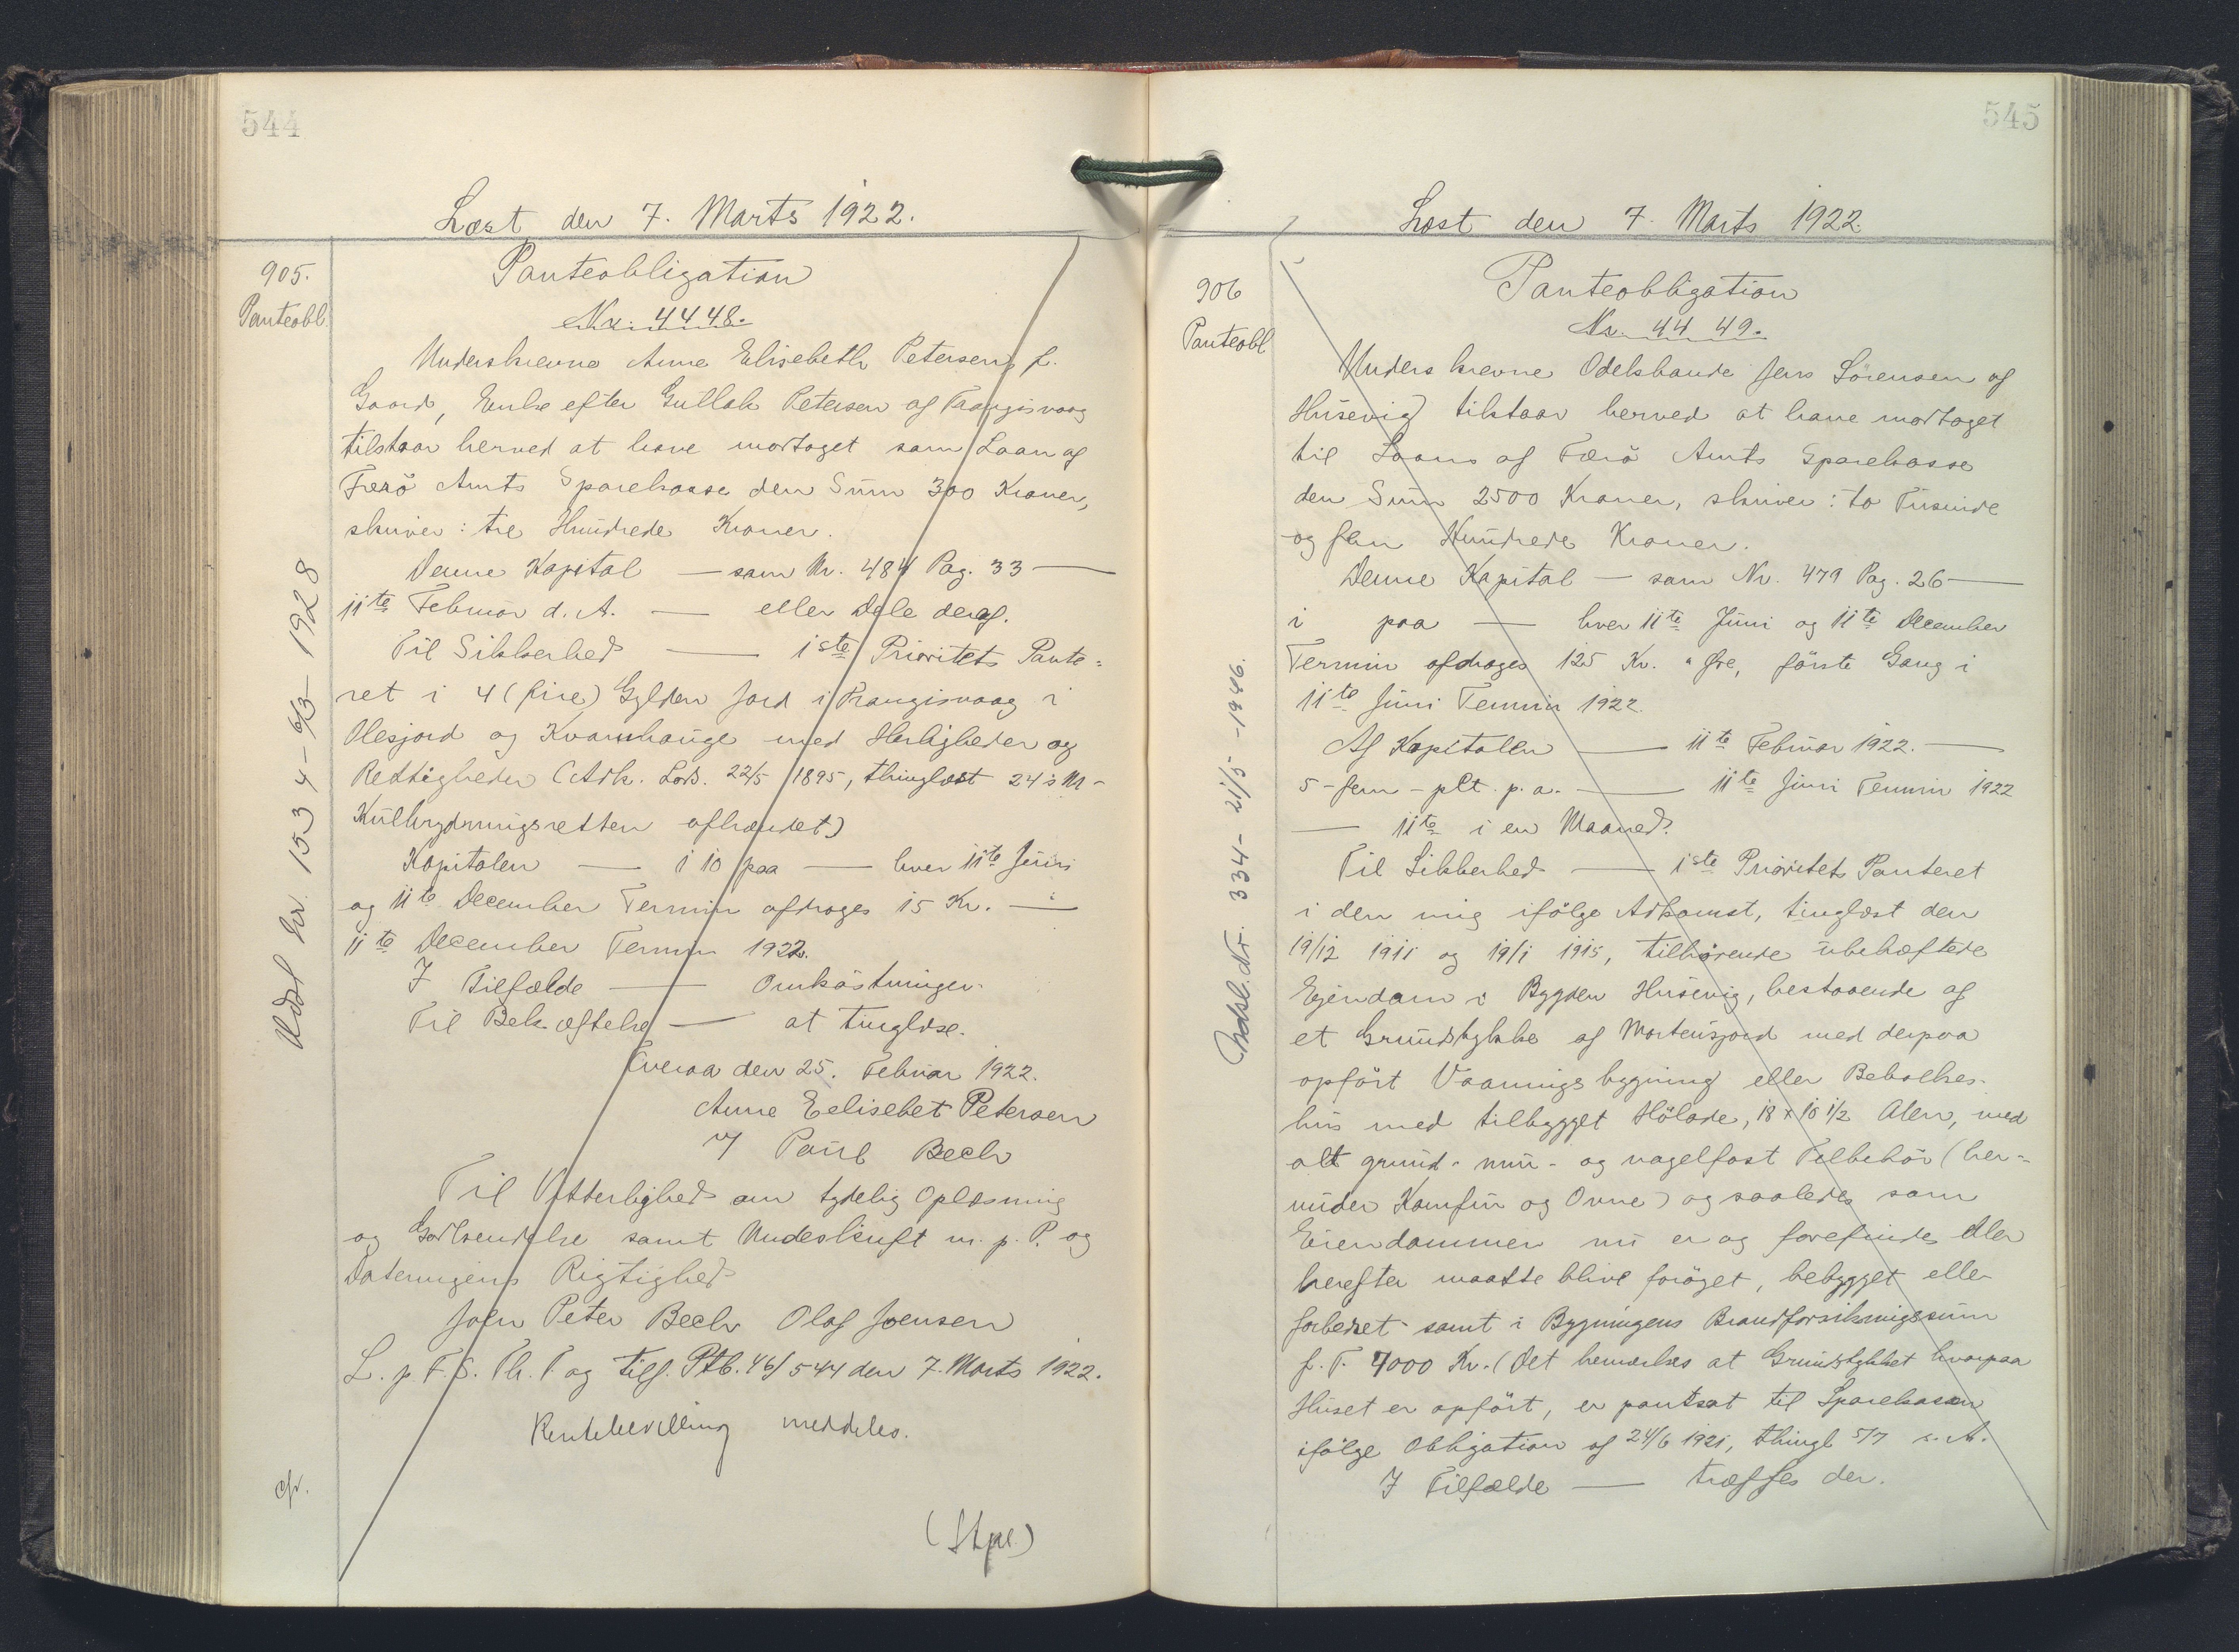 544
Læst den 7. Marts 1922.
905.
Panteobl.
Panteobligation
Nr. 4448.
Underskrevne Anne Elisebeth Petersen f.
Gaard, Enke efter Gullak Petersen af Trangisvaag
tilstaar herved at have modtaget som Laan af
Færö Amts Sparekasse den Sum 300 Kroner,
skriver: tre Hundrede Kroner.
Denne Kapital — som Nr. 484 Pag. 33 —
11te Februar d. A. — eller Dele deraf.
Til Sikkerhed — 1ste Prioritets Pante-
ret i 4 (fire) Gylden Jord i Trangisvaag i
Olesjord og Kvanhauge med Herligheder og
Rettigheder (Adk. Lods. 22/5 1895, thinglæst 24 s M -
Kulbrydningsretten afhændet)
Kapitalen — i 10 paa — hver 11te Juni
og 11te December Termin afdrages 15 Kr. —
11te December Termin 1922.
I Tilfælde — Omkostninger.
Til Bekræftelse — at tinglæse.
Tveraa den 25. Februar 1922.
Anne Eelisebet Petersen
v/ Poul Bech
Til Vitterlighed om tydelig Oplæsning
og Godkendelse samt Underskrift m. p. P. og
Dateringens Rigtighed
John Peter Bech Olaf Joensen
L. p. F. S. Th. P og tilf. Ptb. 46/544 den 7. Marts 1922.
Rentebevilling meddeles.
cfr.
(Stpl.)
Udsl. Nr. 1534 - 6/3 - 1928
545
Læst den 7. Marts 1922.
906
Panteobl
Panteobligation
Nr. 4449.
Underskrevne Odelsbonde Jens Sörensen af
Husevig tilstaar herved at have modtaget
til Laans af Færö Amts Sparekasse
den Sum 2500 Kroner, skriver: to Tusinde
og fem Hundrede Kroner.
Denne Kapital — som Nr. 479 Pag. 26 —
i paa — hver 11te Juni og 11te December
Termin afdrages 125 Kr. " Øre, förste Gang i
11te Juni Termin 1922.
Af Kapitalen — 11te Februar 1922. —
5 - fem - pCt. p. a. — 11te Juni Termin 1922
— 11te i en Maaned.
Til Sikkerhed — 1ste Prioritets Panteret
i den mig ifölge Adkomst, tinglæst den
19/12 1911 og 19/1 1915, tilhörende ubehæftede
Ejendom i Bygden Husevig, bestaaende af
et Grundstykke af Mortensjord med derpaa
opfört Vaaningsbygning eller Beboelses-
hus med tilbygget Hölade, 18 x 10 1/2 Alen, med
alt grund- mur- og nagelfast Tilbehör (her-
under Komfur og Ovne) og saaledes som
Eiendommen nu er og forefindes eller
herefter maatte blive foröget, bebygget eller
forbedret samt i Bygningens Brandforsikringssum
f. T. 7000 Kr. (Det bemærkes at Grundstykket hvorpaa
Huset er opfört, er pantsat til Sparekassen
ifölge Obligation af 24/6 1921, thingl 5/7 s. A.
I Tilfælde — træffes der.
Udsl. Nr. 334 - 21/5 - 1946.